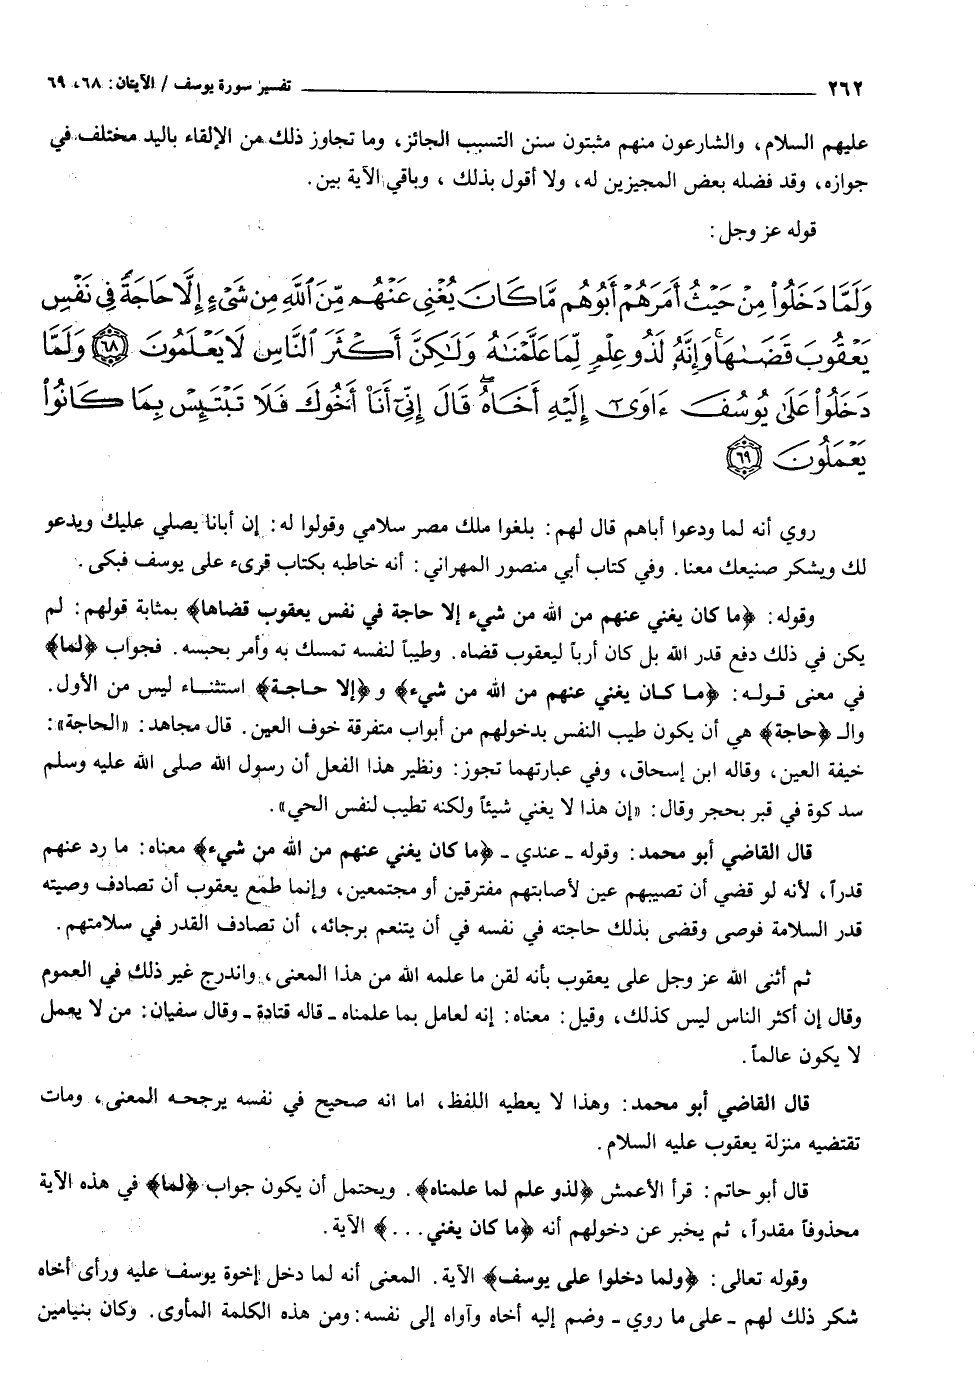 ٢٦٢ تفسير سورة يوسف / الآيتان: ٦٨، ٦٩
عليهم السلام، والشارعون منهم مثبتون سنن التسبب الجائز، وما تجاوز ذلك من الإلقاء باليد مختلف في
جوازه، وقد فضله بعض المجيزين له، ولا أقول بذلك ، وباقي الآية بين.
قوله عز وجل:
وَلَمَّا دَخَلُوا۟ مِنْ حَيْثُ أَمَرَهُمْ أَبُوهُم مَّا كَانَ يُغْنِى عَنْهُم مِّنَ ٱللَّهِ مِن شَىْءٍ إِلَّا حَاجَةً فِى نَفْسِ
يَعْقُوبَ قَضَىٰهَا ۚ وَإِنَّهُۥ لَذُو عِلْمٍ لِّمَا عَلَّمْنَٰهُ وَلَٰكِنَّ أَكْثَرَ ٱلنَّاسِ لَا يَعْلَمُونَ ٦٨ وَلَمَّا
دَخَلُوا۟ عَلَىٰ يُوسُفَ ءَاوَىٰٓ إِلَيْهِ أَخَاهُ ۖ قَالَ إِنِّىٓ أَنَا۠ أَخُوكَ فَلَا تَبْتَئِسْ بِمَا كَانُوا۟
يَعْمَلُونَ ٦٩
روي أنه لما ودعوا أباهم قال لهم: بلغوا ملك مصر سلامي وقولوا له: إن أبانا يصلي عليك ويدعو
لك ويشكر صنيعك معنا. وفي كتاب أبي منصور المهراني: أنه خاطبه بكتاب قرىء على يوسف فبكى.
وقوله: ﴿ما كان يغني عنهم من الله من شيء إلا حاجة في نفس يعقوب قضاها﴾ بمثابة قولهم: لم
يكن في ذلك دفع قدر الله بل كان أرباً ليعقوب قضاه. وطيباً لنفسه تمسك به وأمر بحبسه. فجواب ﴿لما﴾
في معنى قوله: ﴿ما كان يغني عنهم من الله من شيء﴾ و ﴿إلا حاجة﴾ استثناء ليس من الأول.
والـ ﴿حاجة﴾ هي أن يكون طيب النفس بدخولهم من أبواب متفرقة خوف العين. قال مجاهد: «الحاجة»:
خيفة العين، وقاله ابن إسحاق، وفي عبارتهما تجوز: ونظير هذا الفعل أن رسول الله صلى الله عليه وسلم
سد كوة في قبر بحجر وقال: «إن هذا لا يغني شيئاً ولكنه تطيب لنفس الحي».
قال القاضي أبو محمد: وقوله ـ عندي ـ ﴿ما كان يغني عنهم من الله من شيء﴾ معناه: ما رد عنهم
قدراً، لأنه لو قضي أن تصيبهم عين لأصابتهم مفترقين أو مجتمعين، وإنما طمع يعقوب أن تصادف وصيته
قدر السلامة فوصى وقضى بذلك حاجته في نفسه في أن يتنعم برجائه، أن تصادف القدر في سلامتهم.
ثم أثنى الله عز وجل على يعقوب بأنه لقن ما علمه الله من هذا المعنى، واندرج غير ذلك في العموم
وقال إن أكثر الناس ليس كذلك، وقيل: معناه: إنه لعامل بما علمناه ـ قاله قتادة ـ وقال سفيان: من لا يعمل
لا يكون عالماً.
قال القاضي أبو محمد: وهذا لا يعطيه اللفظ، اما انه صحيح في نفسه يرجحه المعنى، ومات
تقتضيه منزلة يعقوب عليه السلام.
قال أبو حاتم: قرأ الأعمش ﴿لذو علم لما علمناه﴾. ويحتمل أن يكون جواب ﴿لما﴾ في هذه الآية
محذوفاً مقدراً، ثم يخبر عن دخولهم أنه ﴿ما كان يغني...﴾ الآية.
وقوله تعالى: ﴿ولما دخلوا على يوسف﴾ الآية. المعنى أنه لما دخل إخوة يوسف عليه ورأى أخاه
شكر ذلك لهم ـ على ما روي ـ وضم إليه أخاه وآواه إلى نفسه: ومن هذه الكلمة المأوى. وكان بنيامين